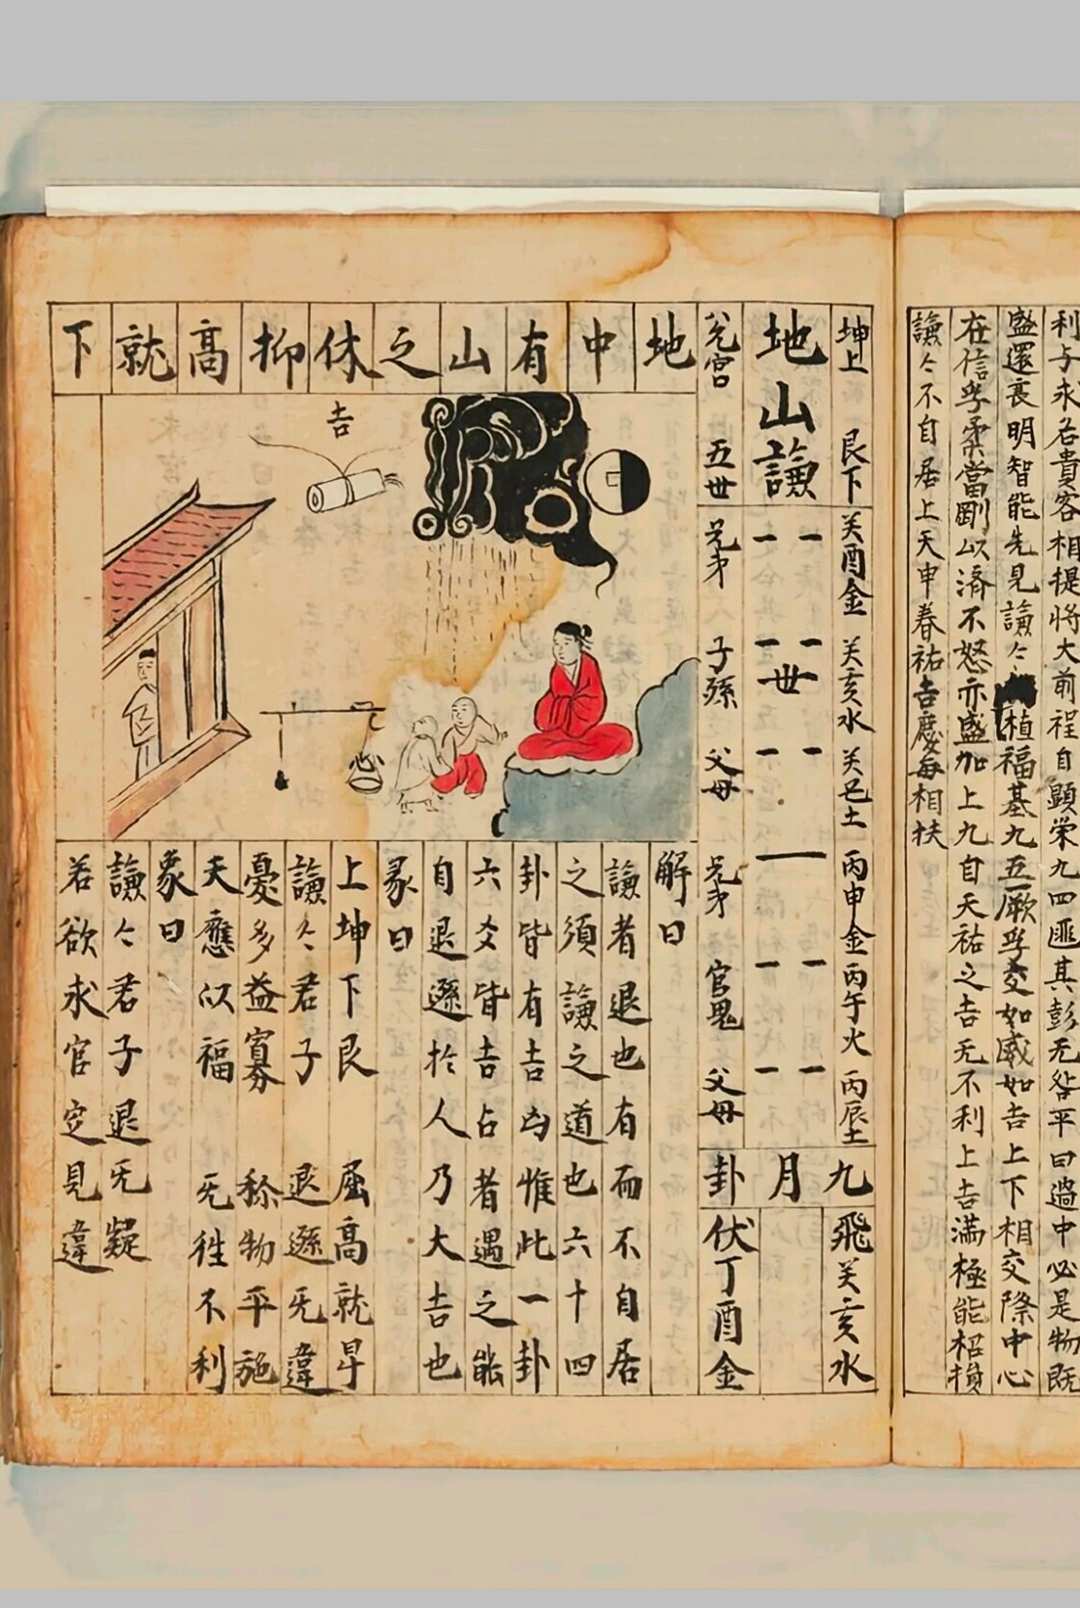 利于求名貴客相提將大前程自顯荣九四匪其彭无咎平曰過中必是物既
盛還衰明智能先見謙亽植福基九五厥孚交如威如吉上下相交際中心
在信孚柔當剛以済不怒亦盛加上九自天祐之吉无不利上吉满極能招損
謙亽不自居上天申眷祐吉慶每相扶
坤上 艮下
地山謙
兌宮 五世
癸酉金 癸亥水 癸丑土 丙申金 丙午火 丙辰土
世
兄弟 子孫 父母 兄弟 官鬼 父母
九月卦
飛癸亥水
伏丁酉金
地中有山之休抑高就下
吉
心
解曰
謙者退也有而不自居
之須謙之道也六十四
卦皆有吉凶惟此一卦
六爻皆吉占者遇之能
自退遜扵人乃大吉也
彖曰
上坤下艮 屈高就早
謙亽君子 退遜旡違
憂多益寡 称物平施
天應以福 旡徃不利
象曰
謙亽君子退旡疑
若欲求官定見違